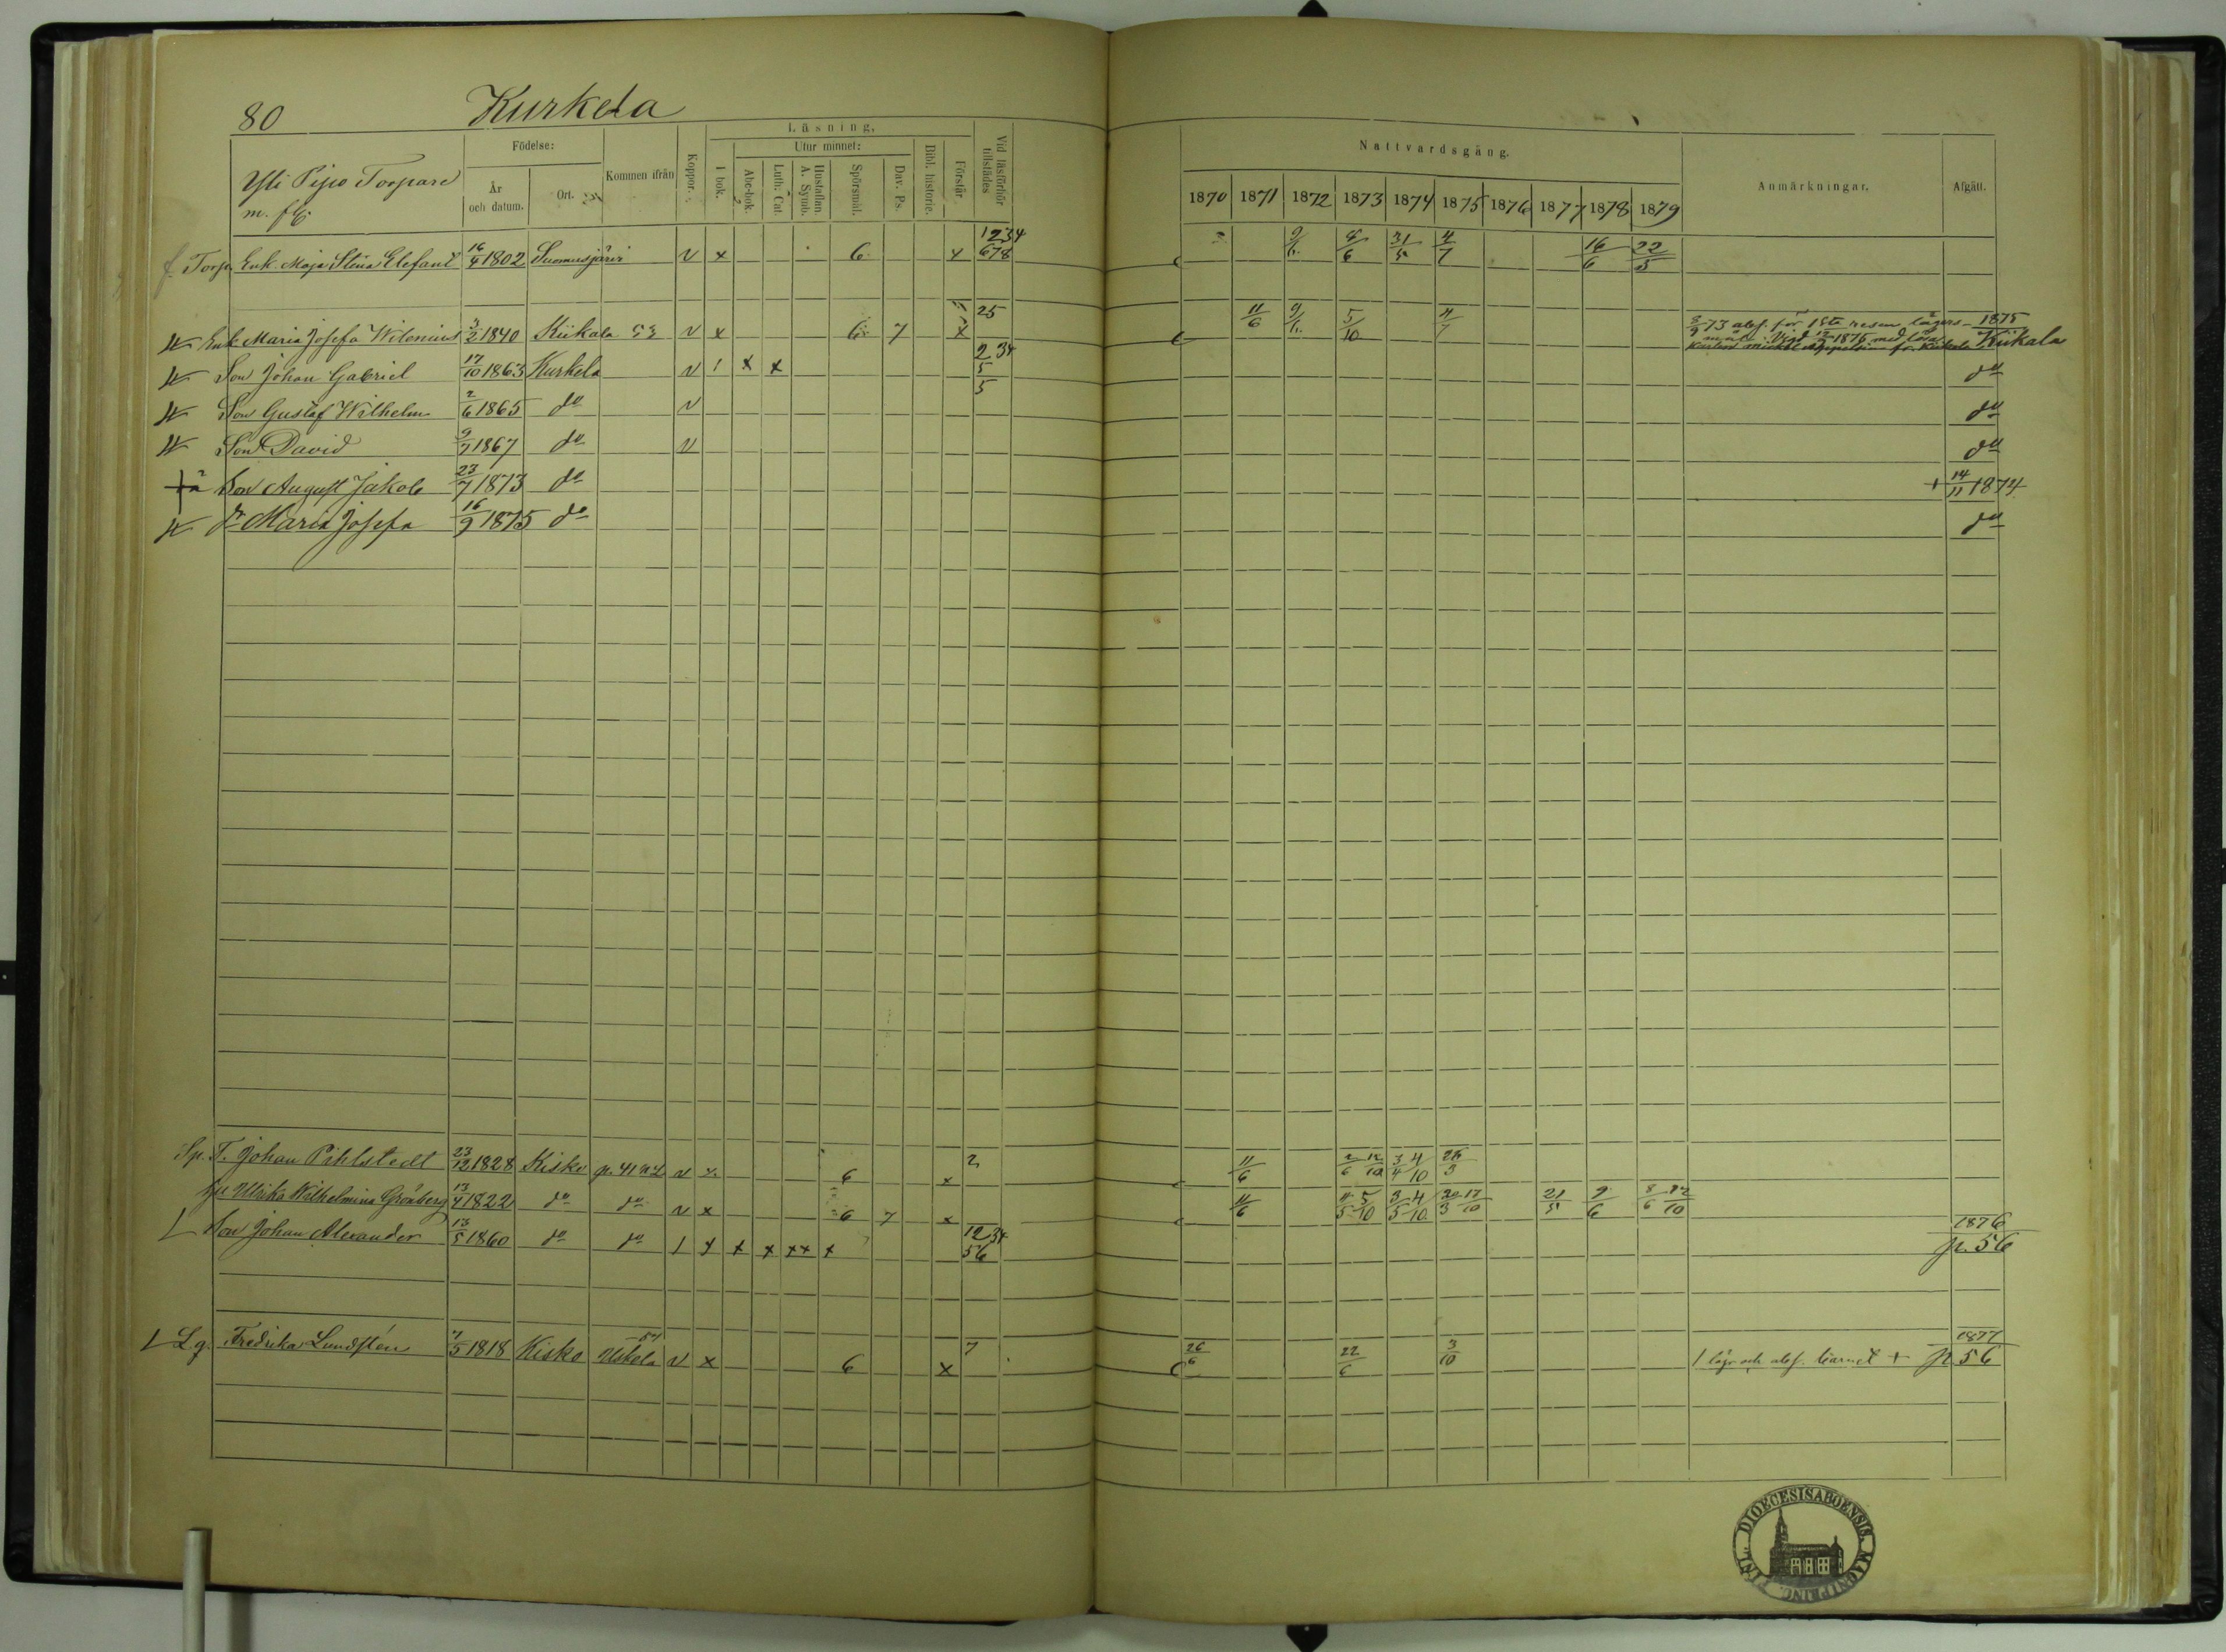 80 Kurkela
Yli Pipo Torpare
m. fl.
Födelse:
År och datum.
Ort.
Kommen ifrån
Koppor.
Läsning.
I bok.
Utur minnet:
Abc-bok.
Luth: Cat.
Hustaflan A. Symb.
Spörsmål.
Dav. Ps.
Bibl. historie.
Förstår
Vid läsförhör tillstädes
Nattvardsgång.
1870 1871 1872 1873 1874 1875 1876 1877 1878 1879
Anmärkningar.
Afgått.
f. Torp. Enk. Maja Stina Elefant 16/4 1802 Suomusjärvi v x 6 x 1234 678 9/6 8/6 31/5 4/7 16/6 22/5
Enk Maria Josefa Wilenius 1840 Kiikala v x 6 7 x 25 11/6 9/6 5/10 4/7 1875 Kiikala
Son Johan Gabriel 17/10 1863 Kurkela v 1 x x 234 5 do
Son Gustaf Wilhelm 2/6 1865 do v 5 do
Son David 9/7 1867 do v do
Son August Jakob 23/7 1873 do + 14/11 1874
Dr Maria Josefa 16/9 1875 do do
Sp. T. Johan Pihlstedt 23/12 1828 Kisko p. 41 v x 6 x 2 11/6 2/6 12/10 3/4 4/10 26/3
Hu Ulrika Wilhelmina Grönberg 13/4 1822 do do v x 6 7 x 11/6 4/5 5/10 3/5 4/10 20/3 17/10 21/5 9/6 8/6 12/10
Son Johan Alexander 13/5 1860 do do 1 x x x xx x 1234 56 1876 p. 56
Lg. Fredrika Lundstén 7/5 1818 Kisko Uskela v x 6 x 7 26/6 22/6 3/10 1 läg. och abs. barnet + 1877 p 56
DIOECESIS ABOENSIS MAGNI PRINC. FINL.